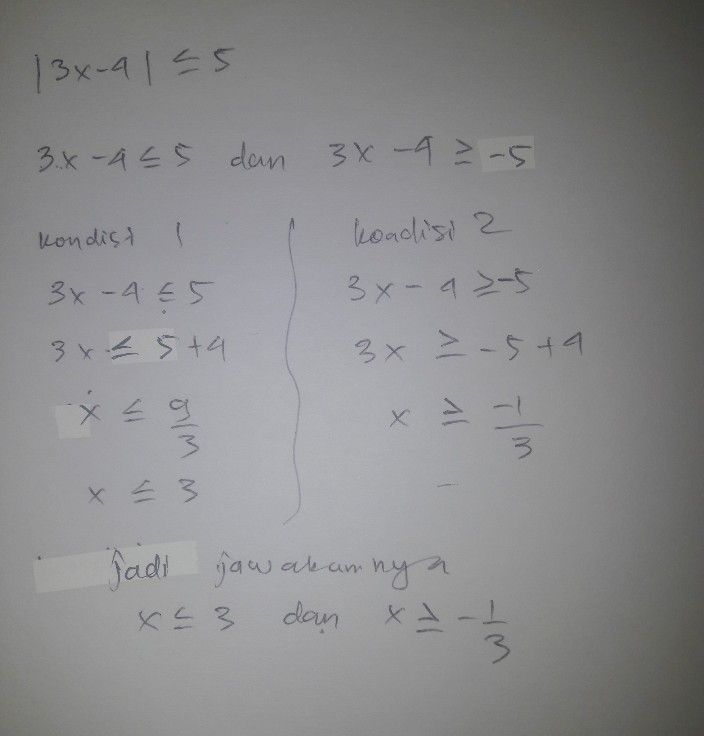 |3x-4| ≤ 5
3x - 4 ≤ 5 dan 3x - 4 ≥ -5
kondisi 1
3x - 4 ≤ 5
3x ≤ 5+4
x ≤ 9/3
x ≤ 3
kondisi 2
3x - 4 ≥ -5
3x ≥ -5+4
x ≥ -1/3
jadi jawabannya
x ≤ 3 dan x ≥ -1/3